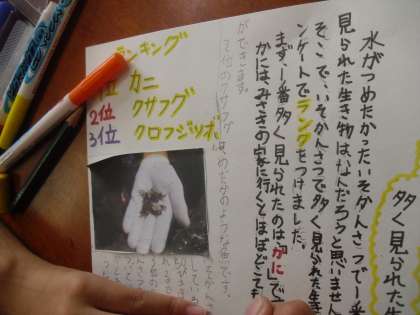 多く見られた生
水がつめたかったいそかんさつで一番
見られた生き物はなんだろうと思いません
そこで、いそかんさつで多く見られた生き
ンケートでランクをつけました。
まず、一番多く見られたのは「かに」で
かには、みさきの家に行くとほぼどこでも
ランキング
位 カニ
2位 クサフグ
3位 クロフジツボ
ができます。
2位のクサフグは、めだかのような魚です。